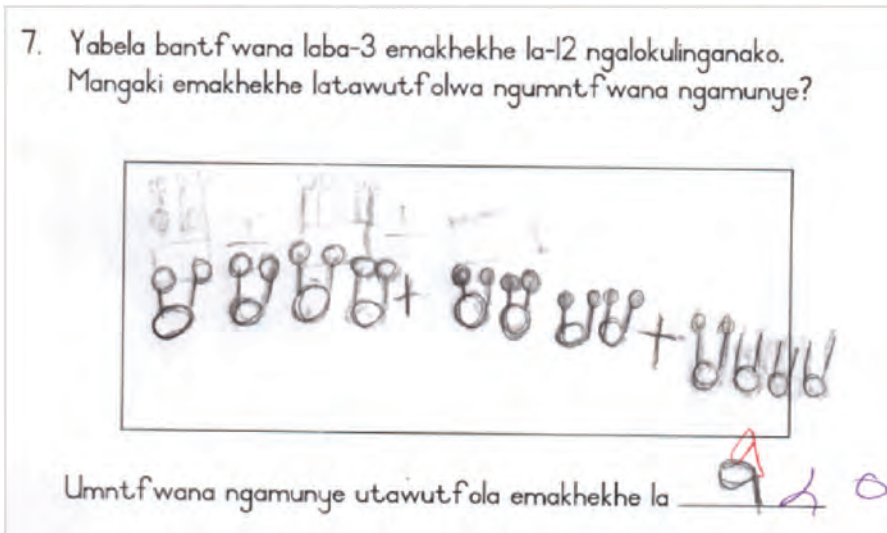 7. Yabela bantfwana laba-3 emakhekhe la-12 ngalokulinganako.
Mangaki emakhekhe latawutfolwa ngumntfwana ngamunye?
+ +
Umntfwana ngamunye utawutfola emakhekhe la 9